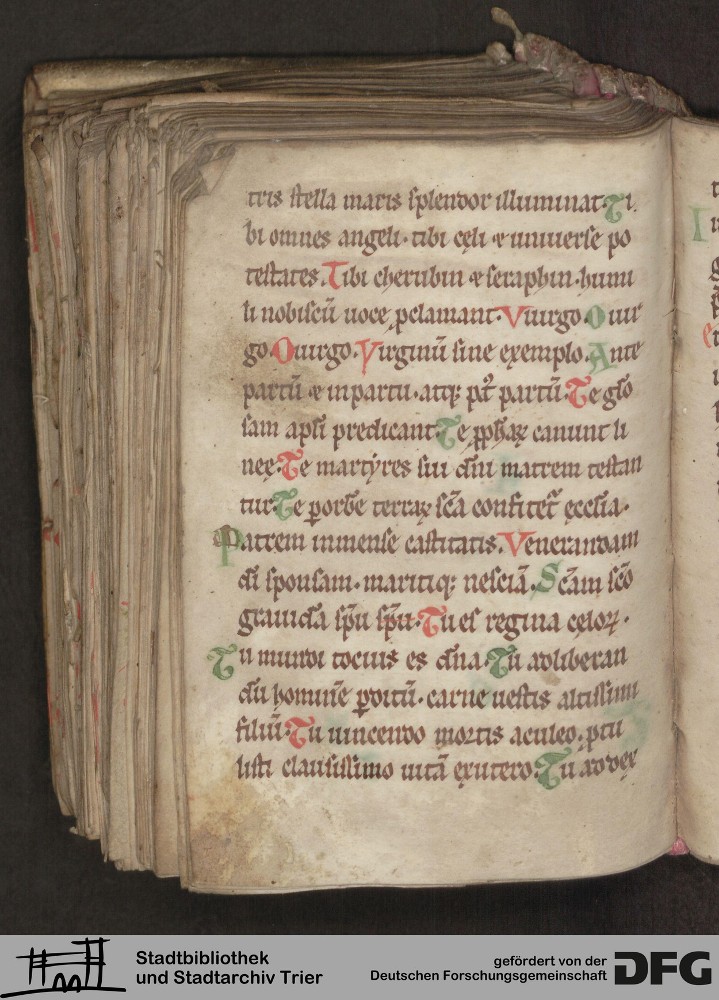 tris stella maris splendor illuminat. Ti
bi omnes angeli. tibi cęli & uniuerse po
testates. Tibi cherubin & seraphin. humi
li nobiscū uoce ꝓclamant. Virgo. O uir
go. O uirgo. Virginū sine exemplo. Ante
partū & in partu. atq; pꝰt partū. Te glō
sam apl̄i predicant. Te ꝓphꝫ canunt li
neę. Te martyres sui dn̄i matrem testan
tur. Te ꝑ orbē terraꝝ sc̄a confitet᷑ ęccl̄ia.
Patrem inmense castitatis. Venerandam
dī sponsam. maritiq; nesciā. Sc̄am sc̄o
grauidā sp̄u sp̄u. Tu es regina cęloꝝ.
Tu mundi tocius es dn̄a. Tu ad liberan
dū hominē ꝑditū. carne uestis altissimi
filiū. Tu uincendo mortis aculeo. ptu
listi clausissimo uitā ex utero. Tu ad dex
Stadtbibliothek
und Stadtarchiv Trier
gefördert von der
Deutschen Forschungsgemeinschaft
DFG